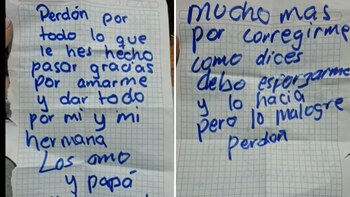 Perdón por
todo lo que
le hes hecho
pasar gracias
por amarme
y dar todo
por mi y mi
hermana
Los amo
y papá
mucho mas
por corregirme
como dices
debo esforgarme
y lo hacia
pero lo malogre
perdon